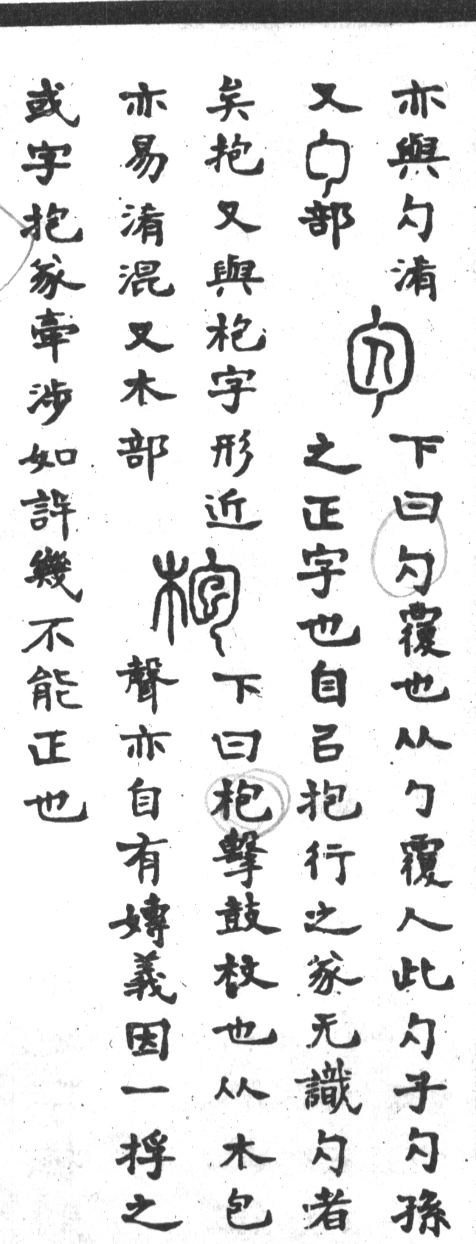 亦與勽淆
又勹部
勽
下曰勽覆也从勹覆人此勽子勽孫
之正字也自㠯抱行之㒸无識勽者
矣抱又與枹字形近
亦易淆混又木部
枹
下曰枹擊鼓杖也从木包
聲亦自有嫥義因一捊之
或字抱㒸牽涉如許幾不能正也